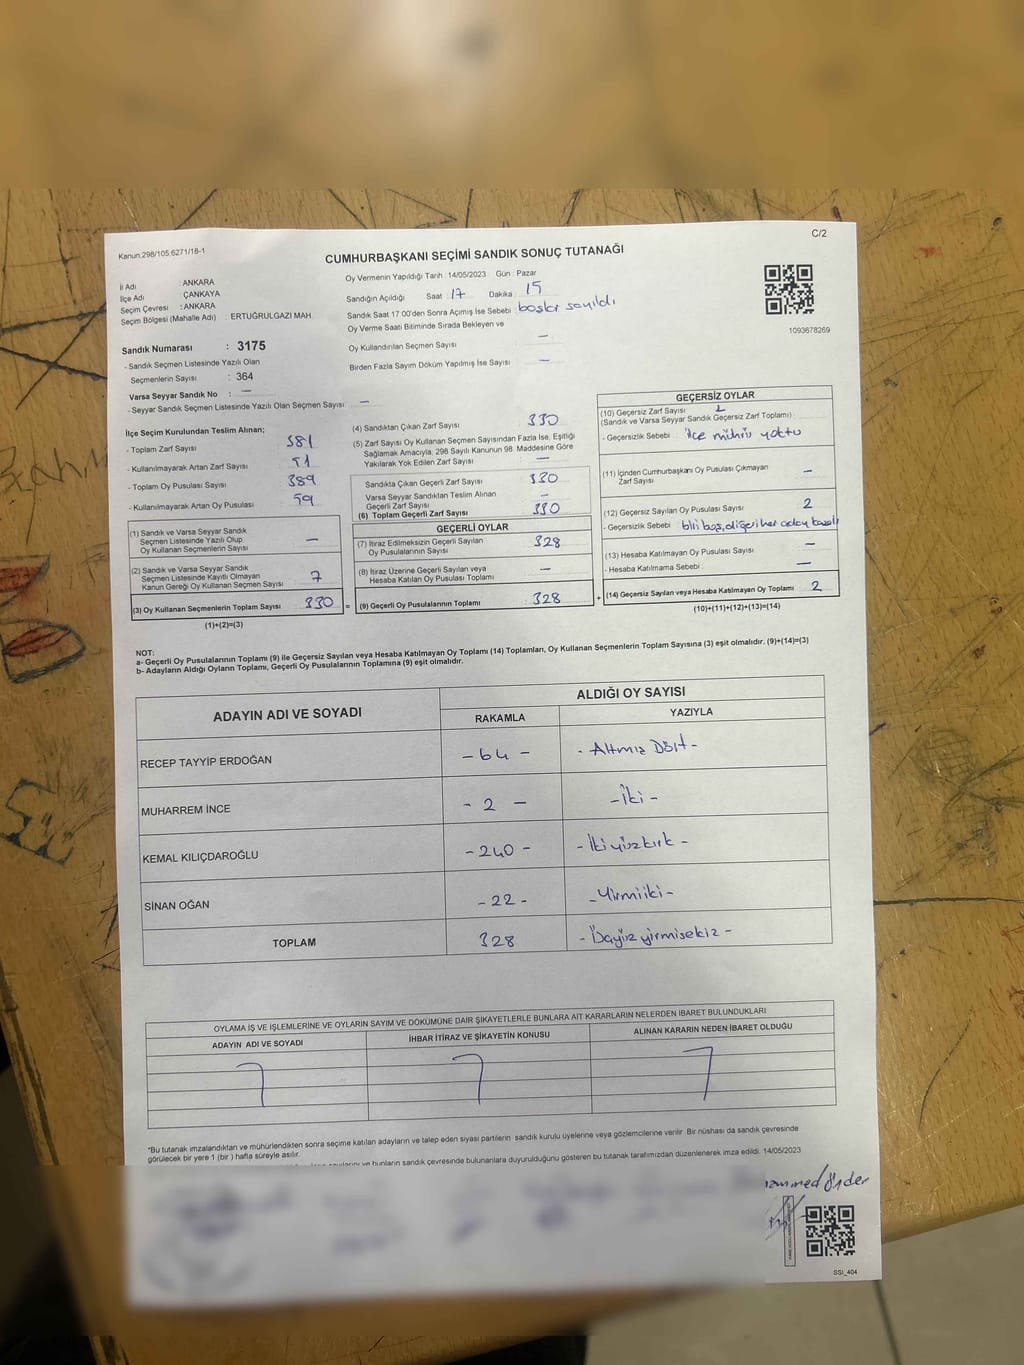 Kanun:298/105,6271/18-1
C/2
CUMHURBAŞKANI SEÇİMİ SANDIK SONUÇ TUTANAĞI
İl Adı : ANKARA
İlçe Adı : ÇANKAYA
Seçim Çevresi : ANKARA
Seçim Bölgesi (Mahalle Adı) : ERTUĞRULGAZI MAH
Oy Vermenin Yapıldığı Tarih : 14/05/2023 Gün : Pazar
Sandığın Açıldığı Saat 17 Dakika : 15
Sandık Saat 17 00'den Sonra Açımış İse Sebebi : boşlar sayıldı
Oy Verme Saati Bitiminde Sırada Bekleyen ve
Oy Kullandırılan Seçmen Sayısı —
Birden Fazla Sayım Döküm Yapılmış İse Sayısı —
1093678269
Sandık Numarası : 3175
- Sandık Seçmen Listesinde Yazılı Olan
Seçmenlerin Sayısı : 364
Varsa Seyyar Sandık No : —
- Seyyar Sandık Seçmen Listesinde Yazılı Olan Seçmen Sayısı —
İlçe Seçim Kurulundan Teslim Alınan;
- Toplam Zarf Sayısı 381
- Kullanılmayarak Artan Zarf Sayısı 51
- Toplam Oy Pusulası Sayısı 389
- Kullanılmayarak Artan Oy Pusulası 59
(1) Sandık ve Varsa Seyyar Sandık
Seçmen Listesinde Yazılı Olup
Oy Kullanan Seçmenlerin Sayısı —
(2) Sandık ve Varsa Seyyar Sandık
Seçmen Listesinde Kayıtlı Olmayan
Kanun Gereği Oy Kullanan Seçmen Sayısı 7
(3) Oy Kullanan Seçmenlerin Toplam Sayısı 330 =
(1)+(2)=(3)
(4) Sandıktan Çıkan Zarf Sayısı 330
(5) Zarf Sayısı Oy Kullanan Seçmen Sayısından Fazla İse, Eşitliği
Sağlamak Amacıyla; 298 Sayılı Kanunun 98. Maddesine Göre
Yakılarak Yok Edilen Zarf Sayısı —
Sandıkta Çıkan Geçerli Zarf Sayısı 330
Varsa Seyyar Sandıktan Teslim Alınan
Geçerli Zarf Sayısı —
(6) Toplam Geçerli Zarf Sayısı 330
GEÇERLİ OYLAR
(7) İtiraz Edilmeksizin Geçerli Sayılan
Oy Pusulalarının Sayısı 328
(8) İtiraz Üzerine Geçerli Sayılan veya
Hesaba Katılan Oy Pusulası Toplamı —
(9) Geçerli Oy Pusulalarının Toplamı 328 +
GEÇERSİZ OYLAR
(10) Geçersiz Zarf Sayısı
(Sandık ve Varsa Seyyar Sandık Geçersiz Zarf Toplamı)
- Geçersizlik Sebebi : ilçe mührü yoktu
(11) İçinden Cumhurbaşkanı Oy Pusulası Çıkmayan
Zarf Sayısı —
(12) Geçersiz Sayılan Oy Pusulası Sayısı 2
- Geçersizlik Sebebi biri boş, diğeri her aday
(13) Hesaba Katılmayan Oy Pusulası Sayısı —
- Hesaba Katılmama Sebebi : —
(14) Geçersiz Sayılan veya Hesaba Katılmayan Oy Toplamı 2
(10)+(11)+(12)+(13)=(14)
NOT:
a- Geçerli Oy Pusulalarının Toplamı (9) ile Geçersiz Sayılan veya Hesaba Katılmayan Oy Toplamı (14) Toplamları, Oy Kullanan Seçmenlerin Toplam Sayısına (3) eşit olmalıdır. (9)+(14)=(3)
b- Adayların Aldığı Oyların Toplamı, Geçerli Oy Pusulalarının Toplamına (9) eşit olmalıdır.
ADAYIN ADI VE SOYADI
ALDIĞI OY SAYISI
RAKAMLA YAZIYLA
RECEP TAYYİP ERDOĞAN - 64 - - Altmış Dört -
MUHARREM İNCE - 2 - - İki -
KEMAL KILIÇDAROĞLU - 240 - - İkiyüzkırk -
SİNAN OĞAN - 22 - - Yirmiiki -
TOPLAM 328 - Üçyüzyirmisekiz -
OYLAMA İŞ VE İŞLEMLERİNE VE OYLARIN SAYIM VE DÖKÜMÜNE DAİR ŞİKAYETLERLE BUNLARA AİT KARARLARIN NELERDEN İBARET BULUNDUKLARI
ADAYIN ADI VE SOYADI
İHBAR İTİRAZ VE ŞİKAYETİN KONUSU
ALINAN KARARIN NEDEN İBARET OLDUĞU
"Bu tutanak imzalandıktan ve mühürlendikten sonra seçime katılan adayların ve talep eden siyasi partilerin sandık kurulu üyelerine veya gözlemcilerine verilir. Bir nüshası da sandık çevresinde
görülecek bir yere 1 (bir ) hafta süreyle asılır.
ve bunların sandık çevresinde bulunanlara duyurulduğunu gösteren bu tutanak tarafımızdan düzenlenerek imza edildi. 14/05/2023
ammed Önder
SSI_404